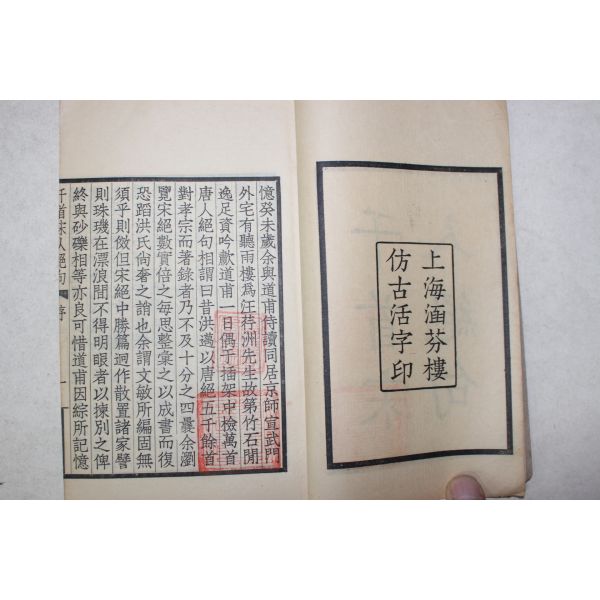 上海涵芬樓
仿古活字印
憶癸未歲余與道甫侍讀同居京師宣武門
外宅有聽雨樓為汪杼洲先生故第竹石閒
逸足資吟歗道甫一日偶于插架中檢萬首
唐人絕句相謂曰昔洪邁以唐絕五千餘首
對孝宗而著錄者乃不及十分之四曩余瀏
覽宋絕數實倍之每思整彙之以成書而復
恐蹈洪氏尙奢之誚也余謂文敏所編固無
須乎則倣但宋絕中勝篇迥作散置諸家譬
則珠璣在漂浪間不得明眼者以揀別之俾
終與砂礫相等亦良可惜道甫因綜所記憶
千首宋人絕句 序 一